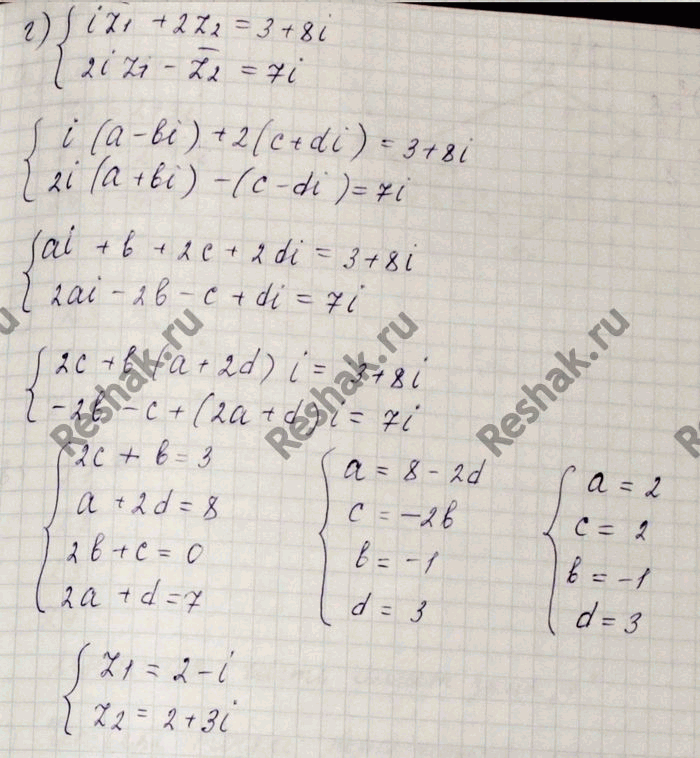 г) { i z̄1 + 2z2 = 3 + 8i
2i z1 - z̄2 = 7i
{ i(a - bi) + 2(c + di) = 3 + 8i
2i(a + bi) - (c - di) = 7i
{ ai + b + 2c + 2di = 3 + 8i
2ai - 2b - c + di = 7i
{ 2c + b + (a + 2d) i = 3 + 8i
-2b - c + (2a + d) i = 7i
{ 2c + b = 3
a + 2d = 8
2b + c = 0
2a + d = 7
{ a = 8 - 2d
c = -2b
b = -1
d = 3
{ a = 2
c = 2
b = -1
d = 3
{ z1 = 2 - i
z2 = 2 + 3i
Reshak.ru
Reshak.ru
Reshak.ru